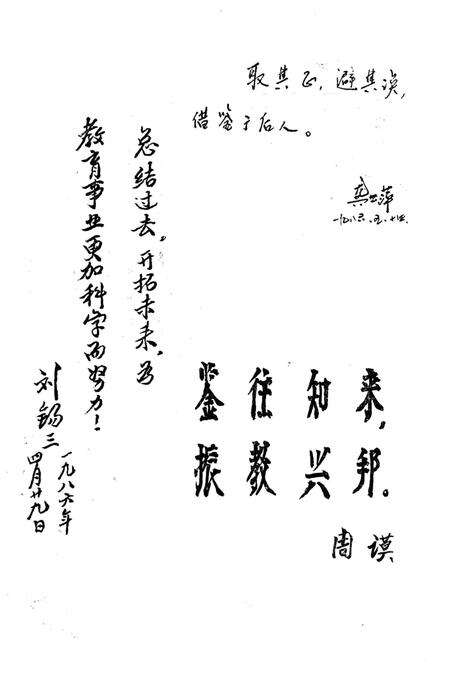 取其正，避其误，
借鉴于后人。
一九八六.五.十五.
总结过去，开拓未来，为
教育事业更加科学而努力！
刘锡三
一九八六年
四月廿九日
鉴往知来，
振教兴邦。
周谟